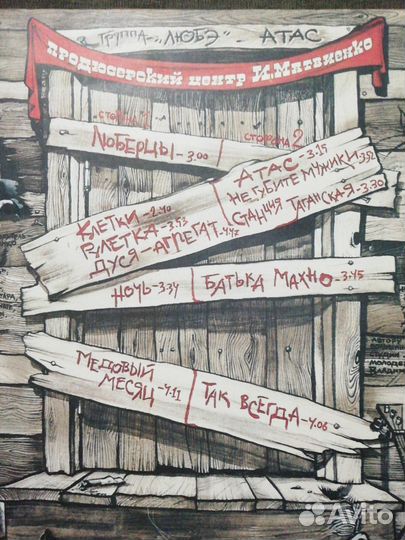 группа - "ЛЮБЭ" - АТАС
продюсерский центр И.Матвиенко
сторона 1
сторона 2
ЛЮБЕРЦЫ - 3.00
АТАС - 3.15
НЕ ГУБИТЕ МУЖИКИ. 3.52
СТАНЦИЯ ТАГАНСКАЯ - 3.30
КЛЕТКИ - 2.40
РУЛЕТКА - 3.53
ДУСЯ - АГРЕГАТ - 4.42
НОЧЬ - 3.34
БАТЬКА МАХНО - 3.45
МЕДОВЫЙ
МЕСЯЦ - 4.11
ТАК ВСЕГДА - 4.06
Avito